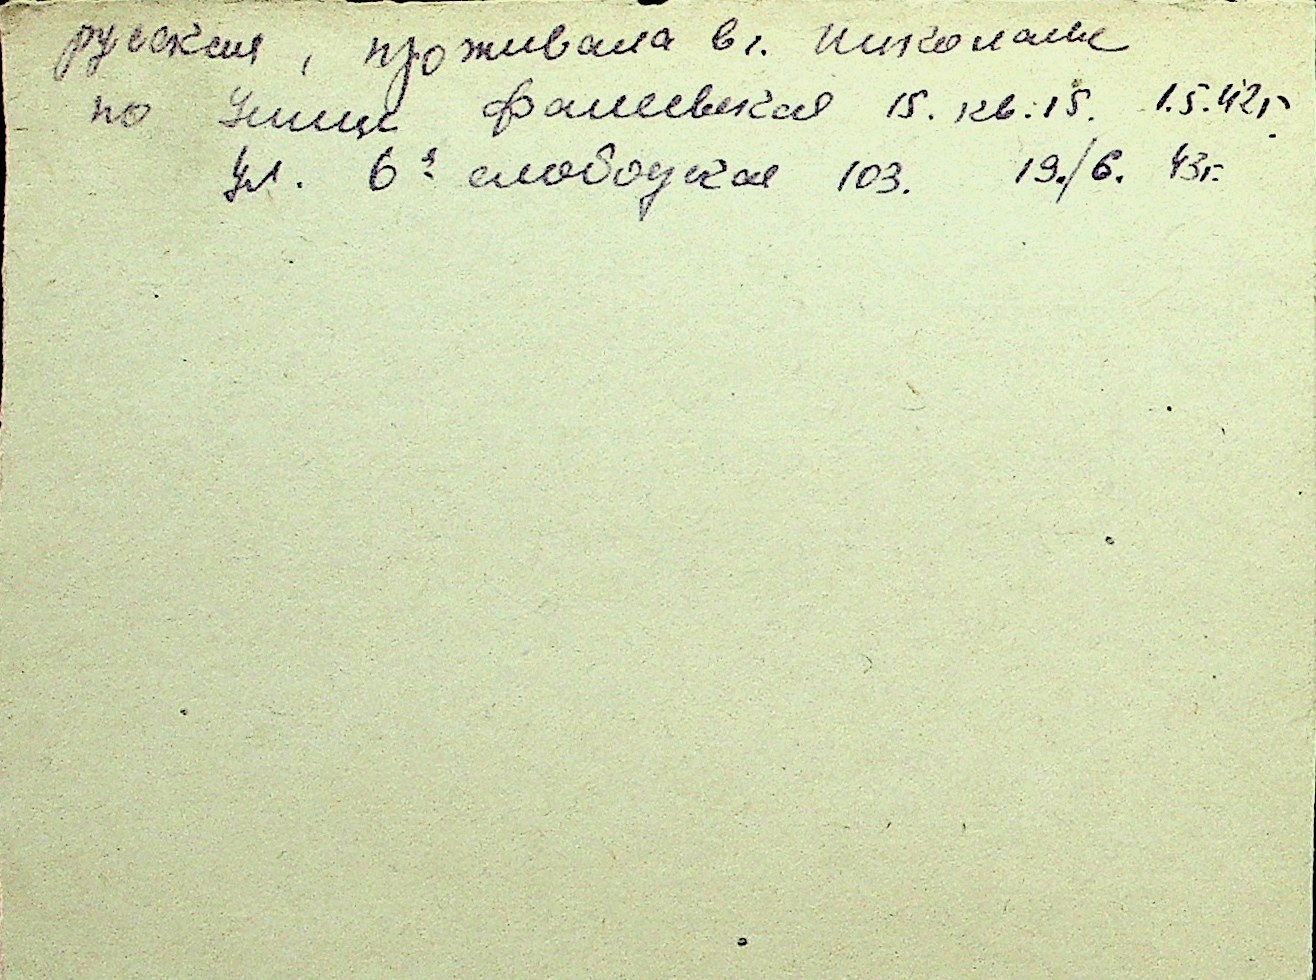 русская, проживала в г. Николаеве
по улице Фалеевская 15. кв. 15. 1.5.42г.
ул. 6я слободская 103. 19./6. 43г.